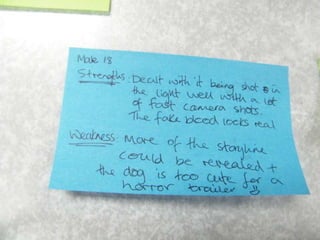 Male 18
Strengths: Dealt with it being shot in
the light well with a lot
of fast camera shots.
The fake blood looks real
Weakness: More of the storyline
could be revealed +
the dog is too cute for a
horror trailer